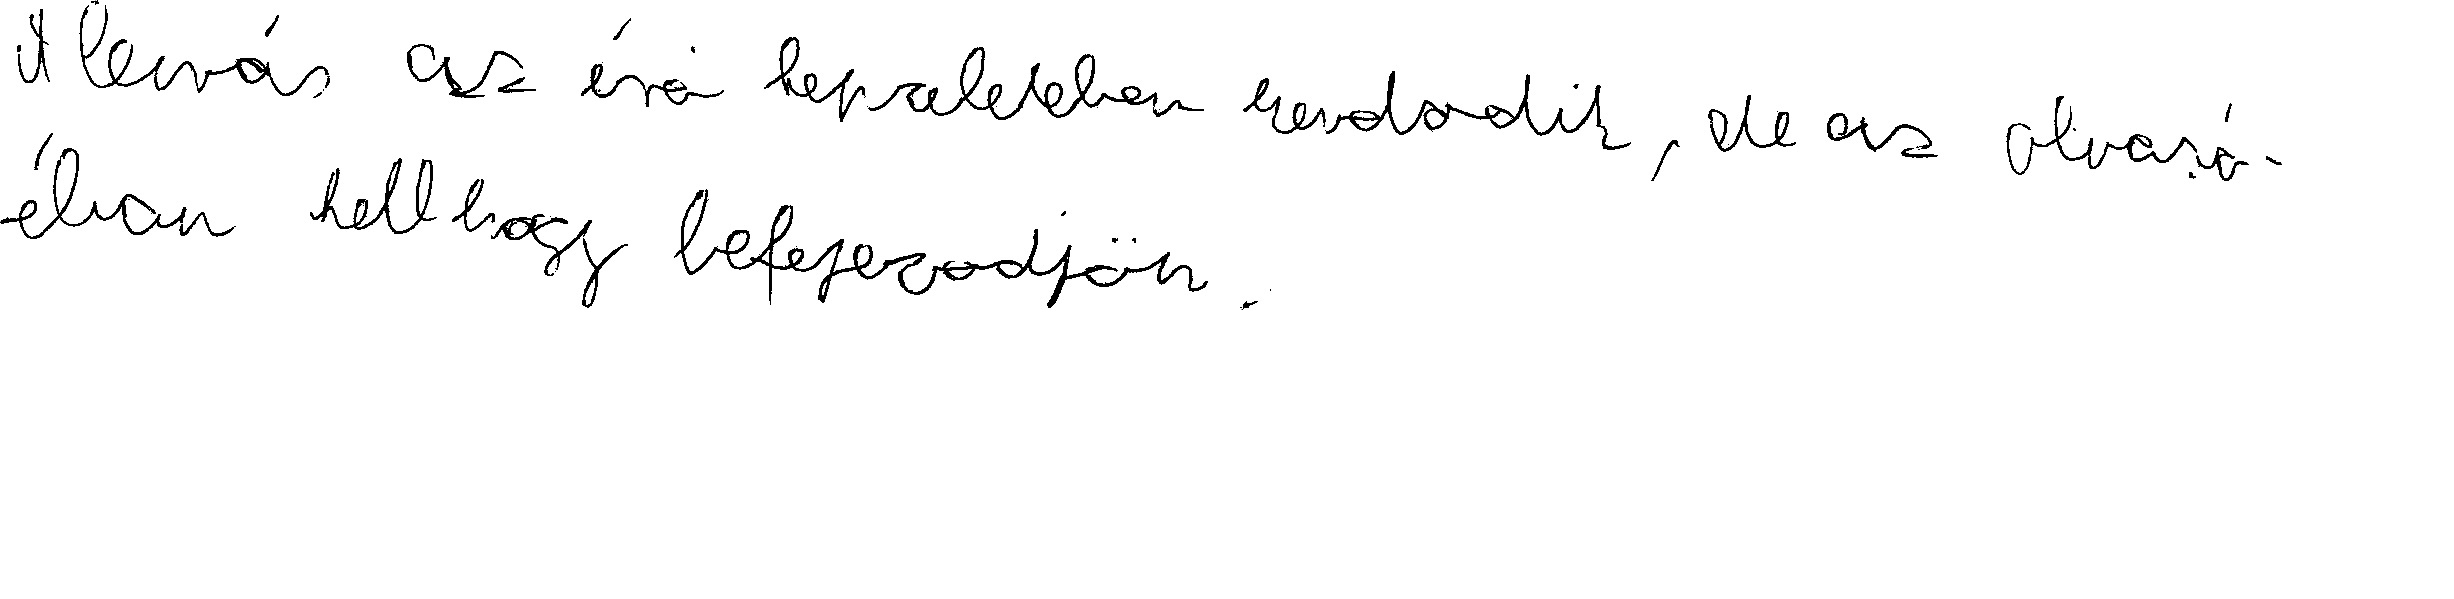 A leírás az író képzeletében kezdődik, de az olvasó-
éban kell hogy befejeződjön.